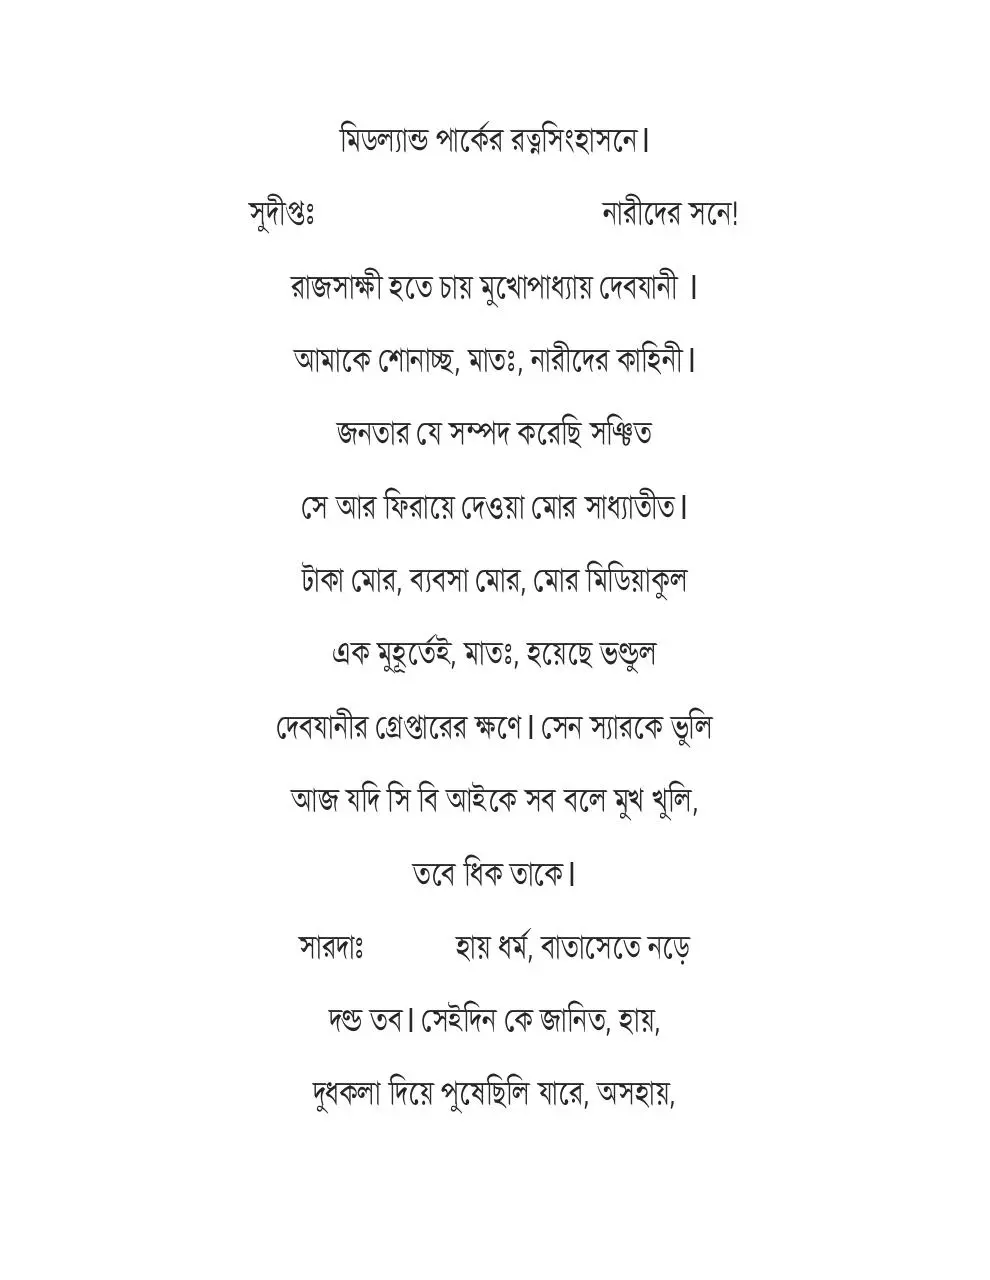 মিডল্যান্ড পার্কের রত্নসিংহাসনে।
সুদীপ্তঃ নারীদের সনে!
রাজসাক্ষী হতে চায় মুখোপাধ্যায় দেবযানী ।
আমাকে শোনাচ্ছ, মাতঃ, নারীদের কাহিনী।
জনতার যে সম্পদ করেছি সঞ্চিত
সে আর ফিরায়ে দেওয়া মোর সাধ্যাতীত।
টাকা মোর, ব্যবসা মোর, মোর মিডিয়াকুল
এক মুহূর্তেই, মাতঃ, হয়েছে ভণ্ডুল
দেবযানীর গ্রেপ্তারের ক্ষণে। সেন স্যারকে ভুলি
আজ যদি সি বি আইকে সব বলে মুখ খুলি,
তবে ধিক তাকে।
সারদাঃ হায় ধর্ম, বাতাসেতে নড়ে
দণ্ড তব। সেইদিন কে জানিত, হায়,
দুধকলা দিয়ে পুষেছিলি যারে, অসহায়,